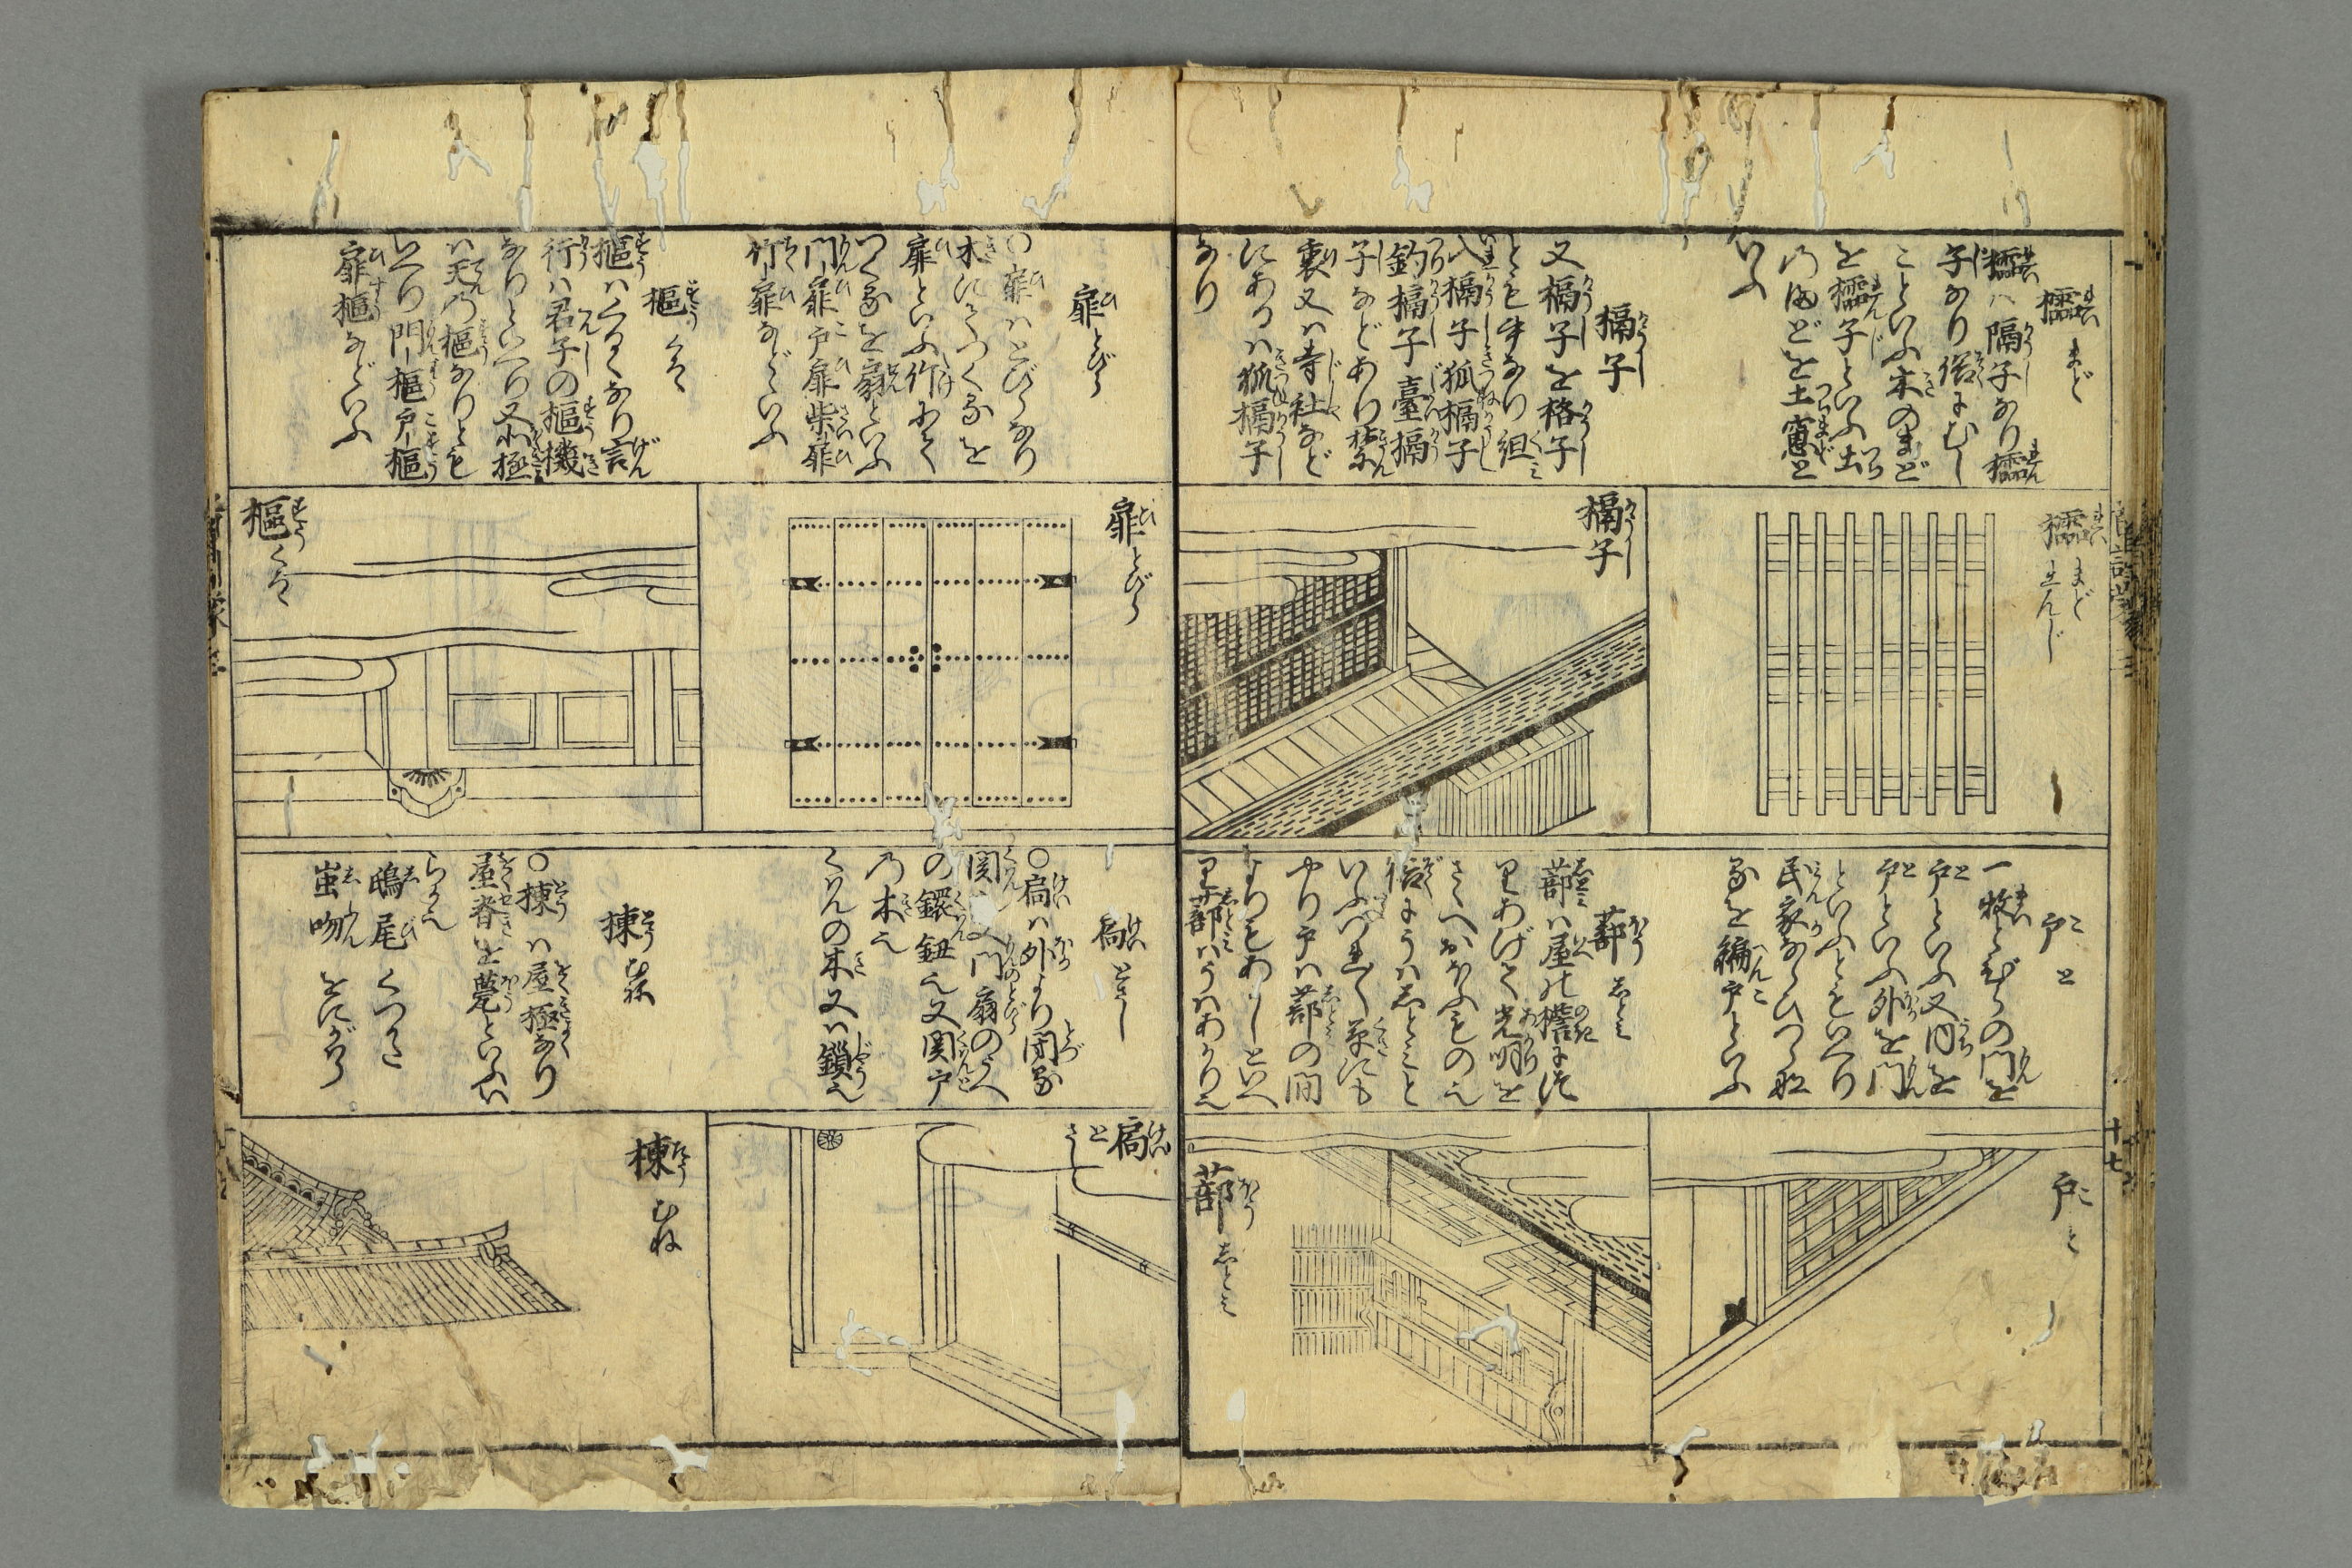 櫺 まど
櫺ハ隔子なり櫺
子なり俗にむし
こといふ木のまど
を櫺子といふ土
のまどを土窓と
いふ
槅子
又槅子を格子
とも書なり組
入槅子狐槅子
釣槅子臺槅
子などあり禁
裏又ハ寺社など
にあるハ狐槅子
なり
櫺 まど
れんじ
槅子
戸 と
一枚とびらの門を
戸といふ又内を
戸といふ外を門
といふともいへり
民家
るを編戸といふ
蔀 しとみ
蔀ハ屋の檐に
りあげて光明を
さゝへおほふもの也
俗にうハしとみと
いふ
やり戸ハ蔀の間
よりもあ
り蔀ハうハあかり也
戸 と
蔀 しとみ
十七
扉 とびら
〇扉ハとびらなり
木にてつくるを
扉といふ竹にて
つくるを扇といふ
門扉戸扉柴扉
竹扉などゝいふ
樞 くるゝ
樞ハくるゝなり言
行ハ君子の樞機
なりといへり又北極
ハ天乃樞なりとも
いへり門樞戸樞
扉樞などいふ
扉 とびら
樞 くるゝ
扃 とざし
〇扃ハ外より閉る
関也又門扇のうへ
の鐶鈕也又関戸
乃木也
くハんの木又ハ鎖也
棟 むね
〇棟ハ屋極なり
屋脊を甍といふい
らか也
鴟尾 くつかた
蚩吻 をにがハら
扃 と
ざし
棟 むね